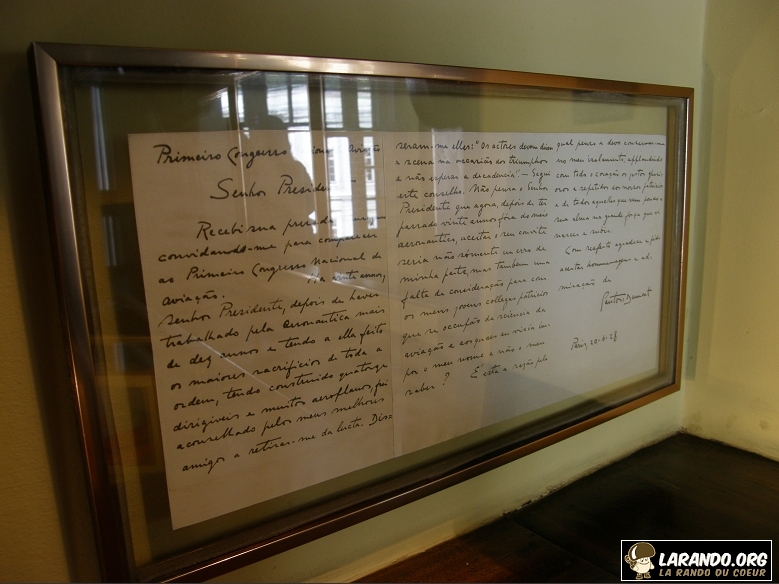 Primeiro Congresso Aviação
Senhor Presidente
Recebi sua prezada
convidando-me para comparecer
ao Primeiro Congresso Nacional de
aviação. Ha vinte annos,
Senhor Presidente, depois de haver
trabalhado pela aeronautica mais
de dez annos e tendo a ella feito
os maiores sacrificios de toda a
ordem, tendo construido quatorze
dirigiveis e muitos aeroplanos, fui
aconselhado pelos meus melhores
amigos a retirar-me da lucta. Dis=
seram-me elles: "Os actores devem deixar
a scena na occasião dos triumphos
e não esperar a decadencia". — Segui
este conselho. Não pensa o Senhor
Presidente que agora, depois de ter
passado vinte annos fóra do meio
aeronautico, acceitar o seu convite
seria não sómente um erro de
minha parte, mas tambem uma
falta de consideração para com
os meus jovens collegas patricios
que se occupão da sciencia da
aviação e aos quaes eu viria im=
por o meu nome e não o meu
saber? E' esta a razão pela
qual penso e devo conservar-me
no meu isolamento, applaudindo
com todo o coração os feitos glori=
osos e repetidos dos nossos patricios
e de todos aquelles que
sua alma na grande força que os
nascer e subir.
Com respeito
acceitar homenagem e ad=
miração de
Santos=Dumont
Paris, 20-6-28
LARANDO.ORG
LA RANDO DU COEUR